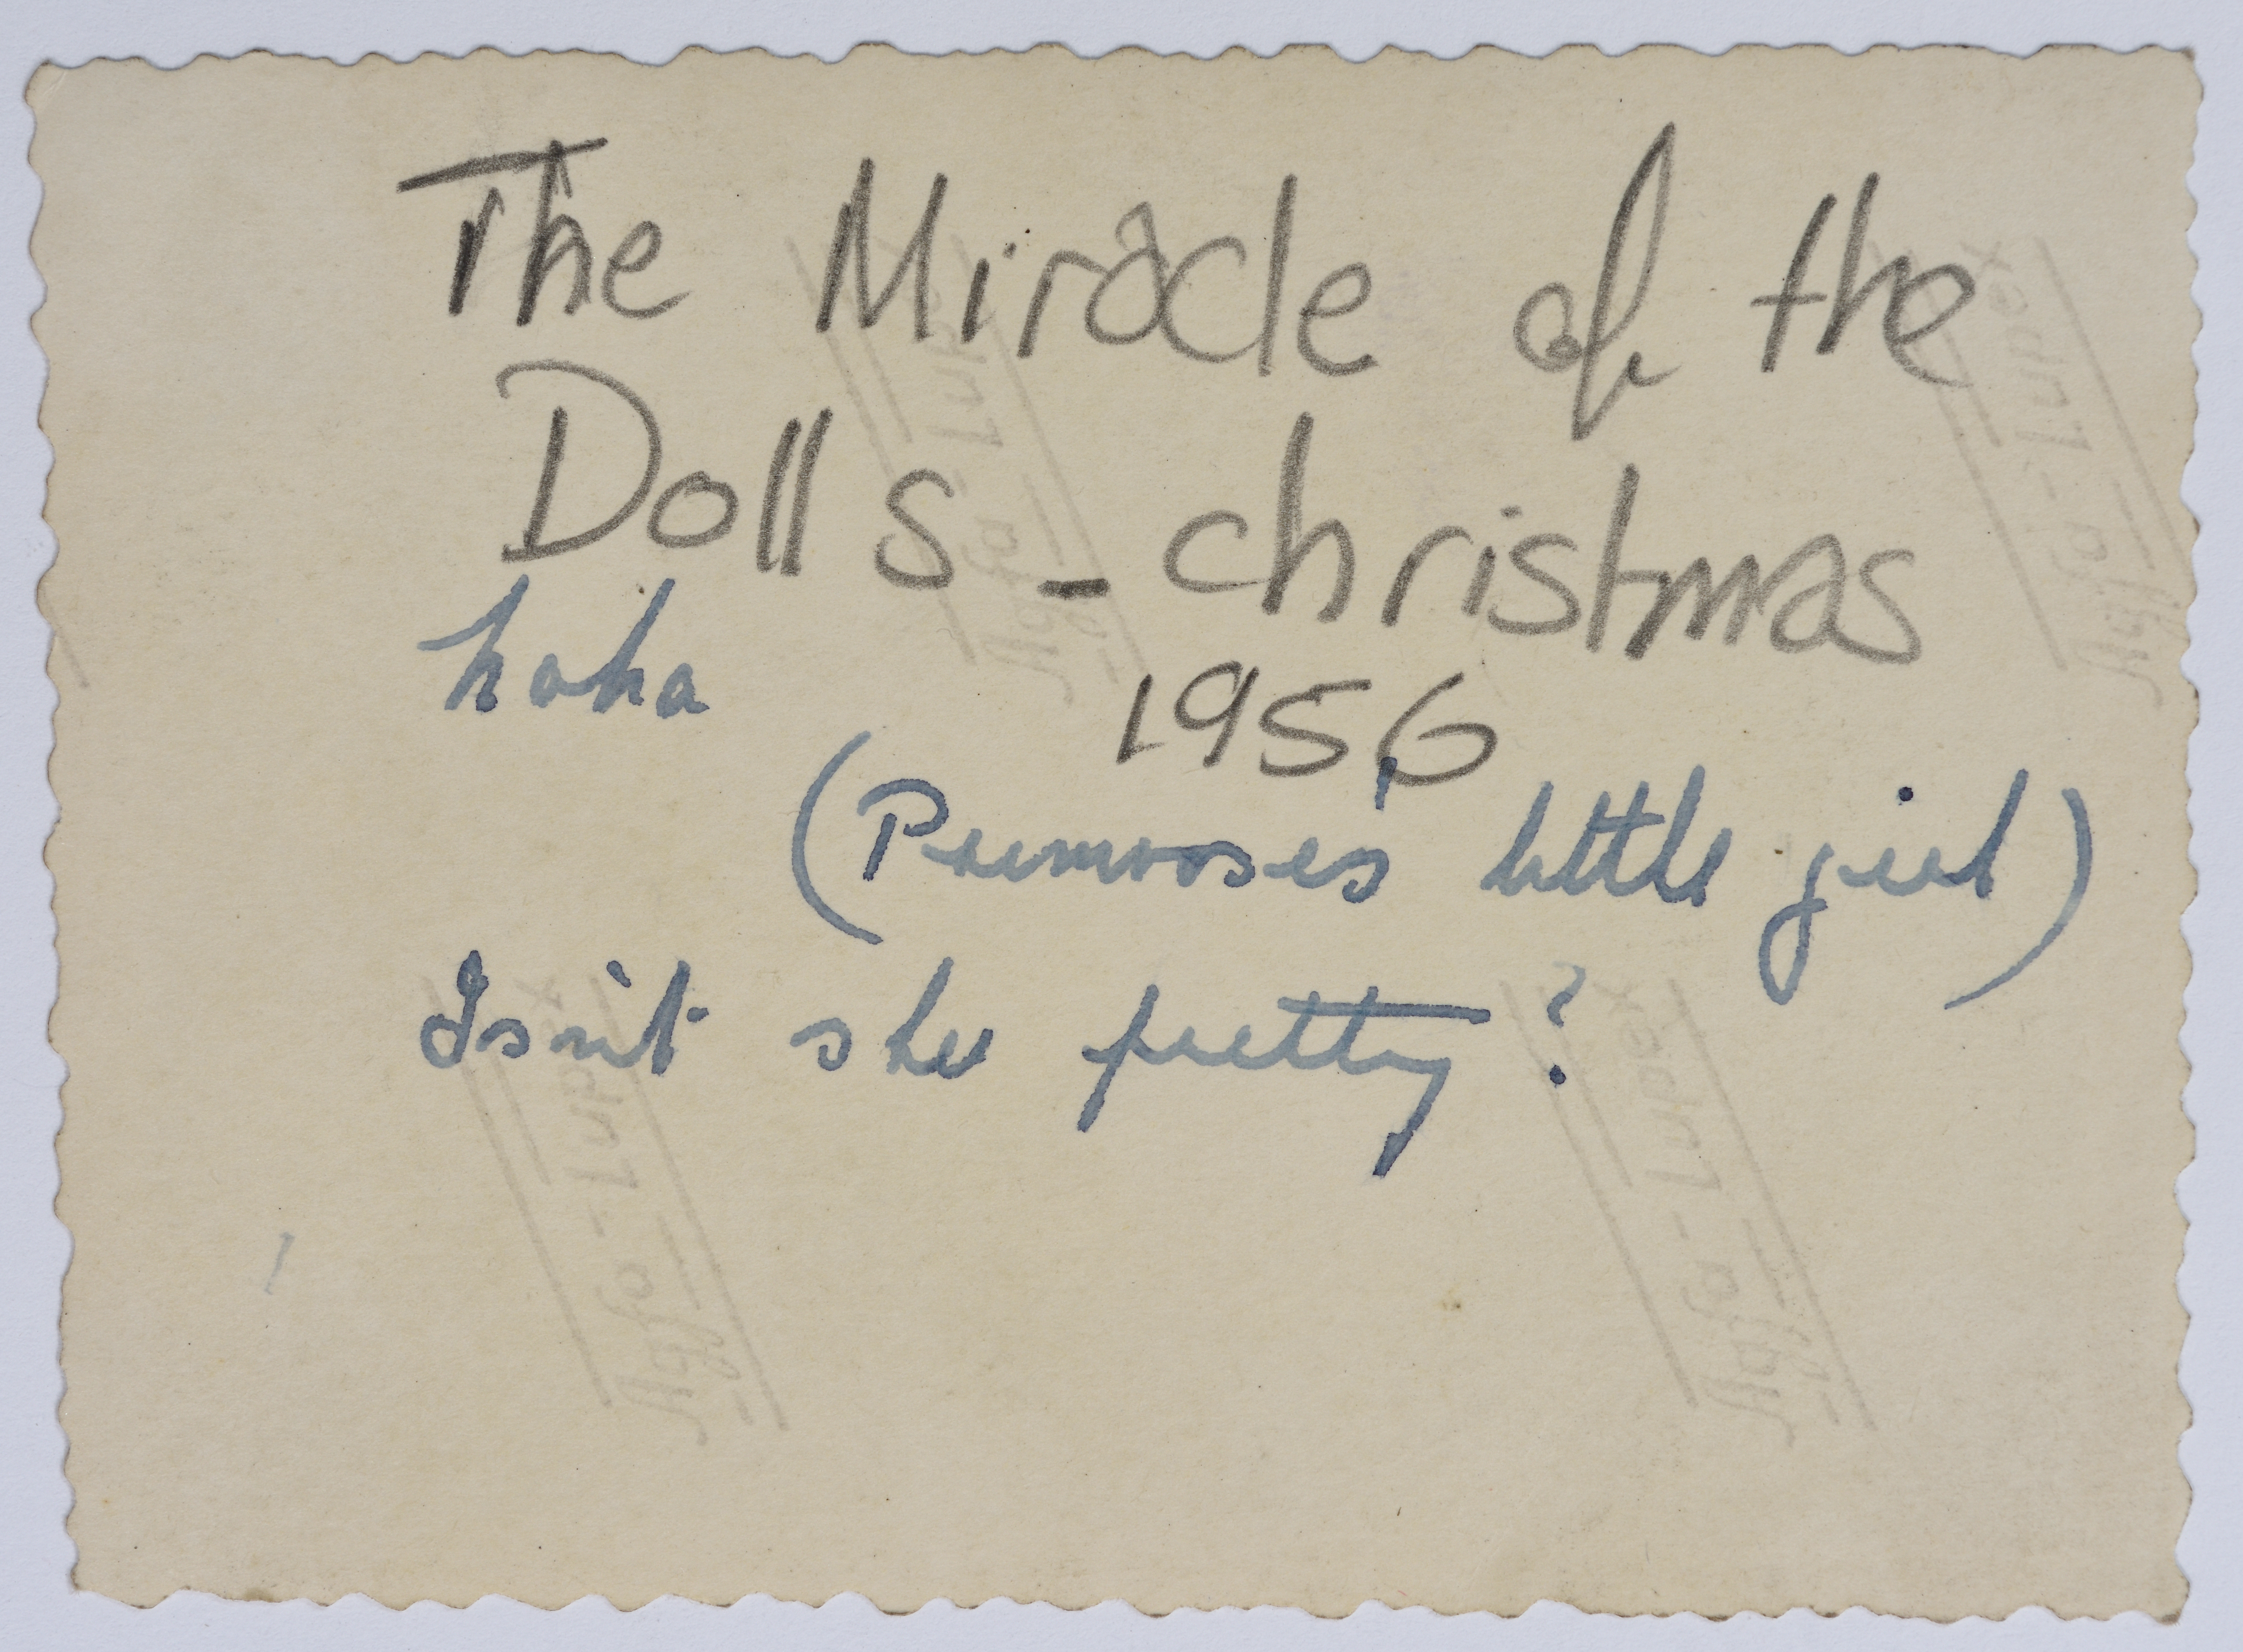 The Miracle of the
Dolls - christmas
haha 1956
(Primrose's little girl)
Isn't she pretty?
Agfa - Lupex
Agfa - Lupex
Agfa - Lupex
Agfa - Lupex